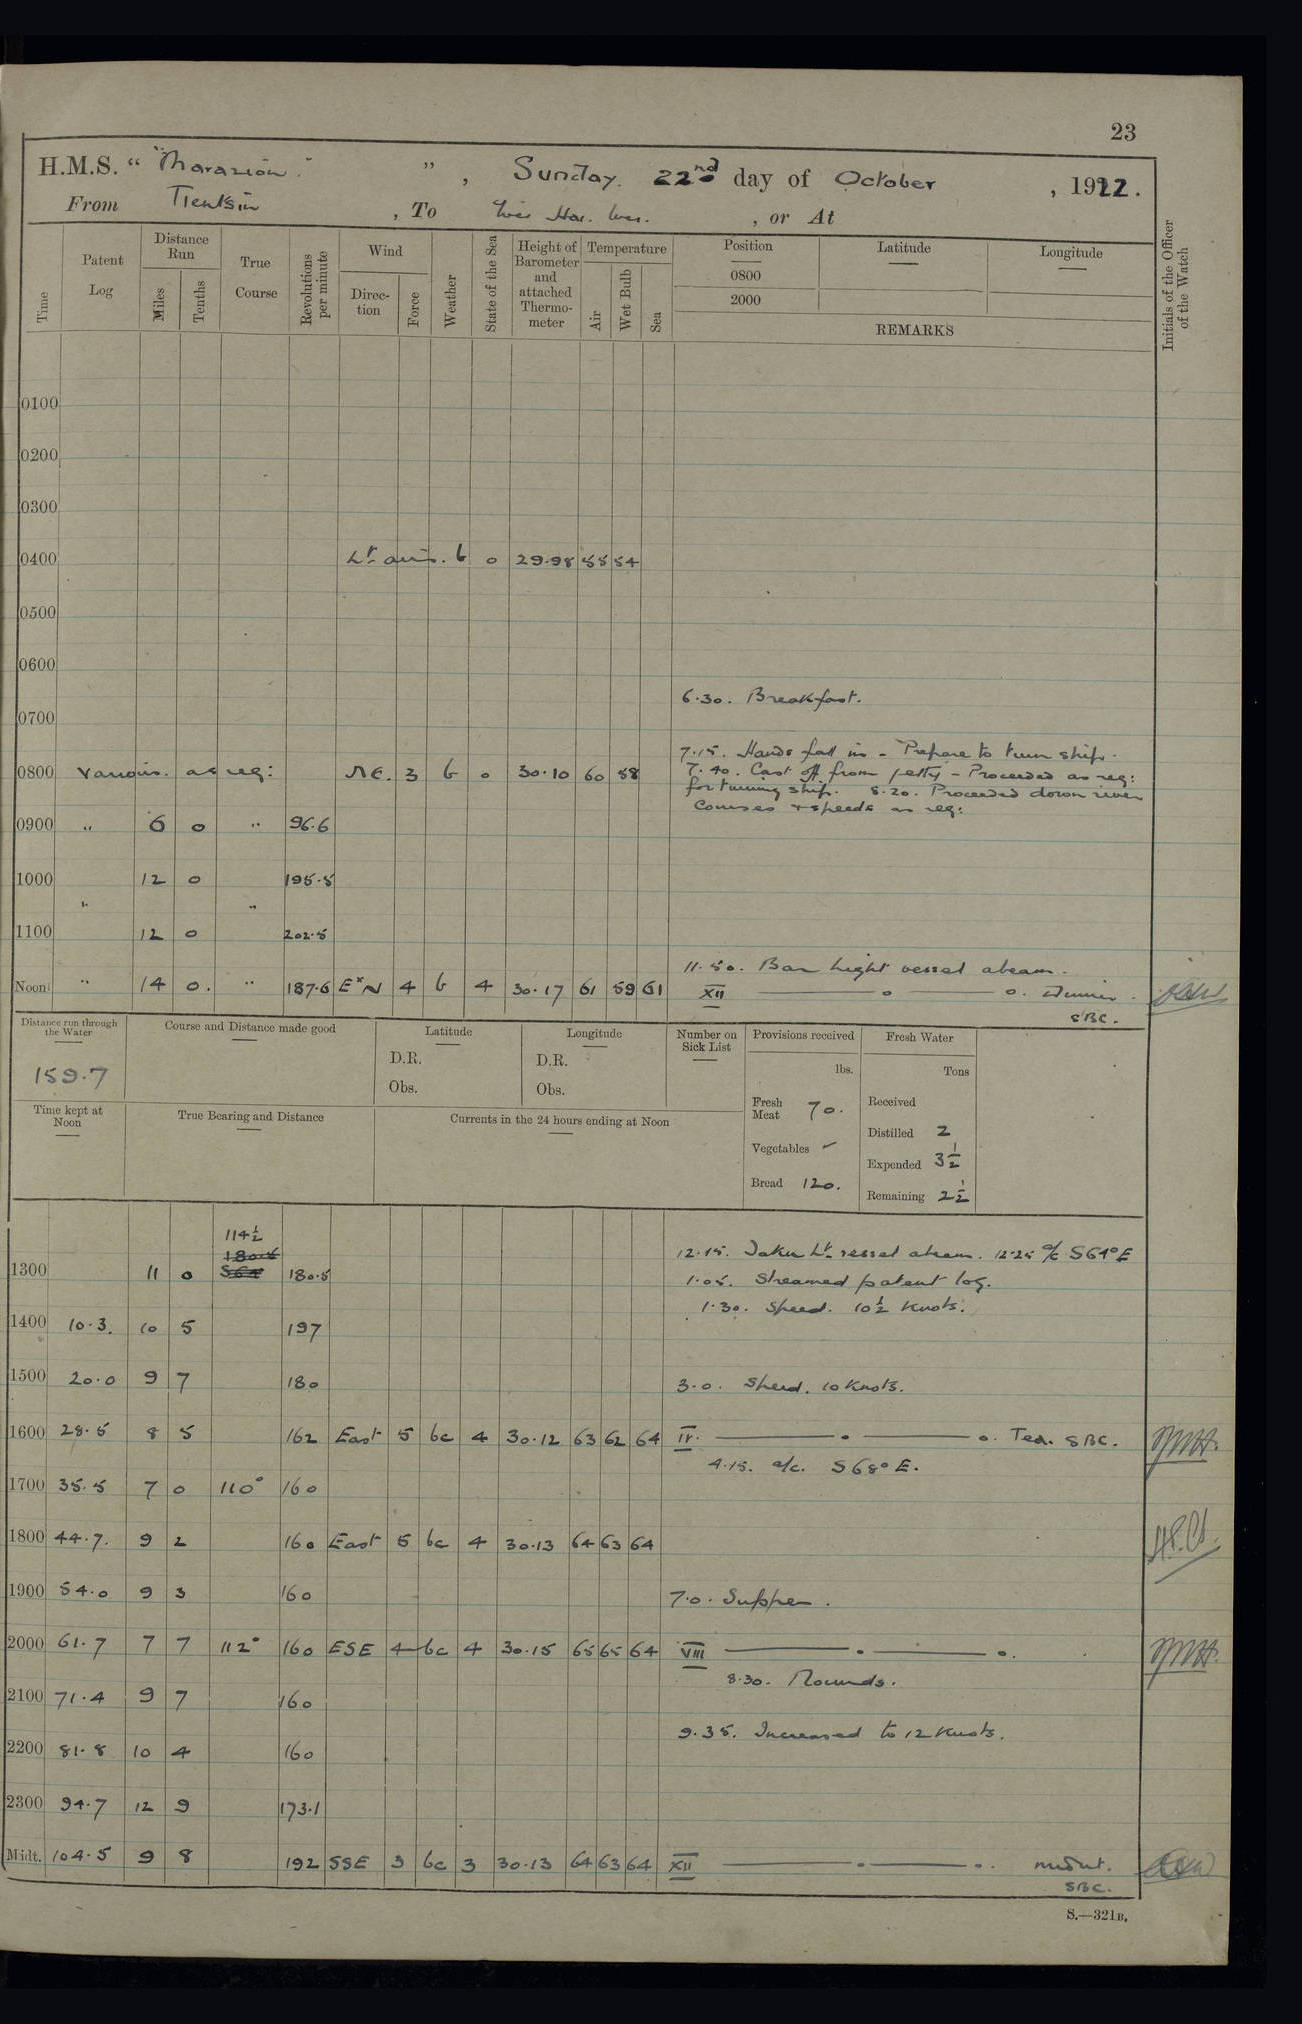 23
H.M.S. “ "Marazion" ” , Sunday 22nd day of October , 1922.
From Tientsin , To Wei Hai Wei. , or At
Time
Patent Log
Distance Run
Miles
Tenths
True Course
Revolutions per minute
Wind
Direction
Force
Weather
State of the Sea
Height of Barometer and attached Thermometer
Temperature
Air
Wet Bulb
Sea
Position
Latitude
Longitude
0800
2000
REMARKS
Initials of the Officer of the Watch
0100
0200
0300
0400 Lt airs. b 0 29.98 55 54
0500
0600
6.30. Breakfast.
0700
7.15. Hands fall in - Prepare to turn ship.
0800 Various. as req: NE. 3 b 0 30.10 60 58 7.40. Cast off from jetty - Proceeded as req:
for turning ship. 8.20. Proceeded down river
Courses & speeds as req:
0900 " 6 0 " 96.6
1000 12 0 195.5
" "
1100 12 0 202.5
11.50. Bar Light vessel abeam.
Noon " 14 0. " 187.6 ExN 4 b 4 30.17 61 59 61 XII o o. Dinner.
SBC.
Distance run through the Water
159.7
Course and Distance made good
Latitude
D.R.
Obs.
Longitude
D.R.
Obs.
Number on Sick List
Provisions received
lbs.
Fresh Meat 70.
Vegetables –
Bread 120.
Fresh Water
Tons
Received
Distilled 2
Expended 3½
Remaining 2½
Time kept at Noon
True Bearing and Distance
Currents in the 24 hours ending at Noon
114½
180.5
12.15. Taku Lt vessel abeam. 12.25 a/c S64°E
1300 11 0 S64 180.5 1.05. Streamed patent log.
1.30. Speed. 10½ Knots.
1400 10.3. 10 5 197
1500 20.0 9 7 180 3.0. Speed. 10 Knots.
1600 28.5 8 5 162 East 5 bc 4 30.12 63 62 64 IV. . o. Tea. SBC.
4.15. a/c. S68°E.
1700 35.5 7 0 110° 160
1800 44.7. 9 2 160 East 5 bc 4 30.13 64 63 64
1900 54.0 9 3 160 7.0. Supper.
2000 61.7 7 7 112° 160 ESE 4 bc 4 30.15 65 65 64 VIII . o.
8.30. Rounds.
2100 71.4 9 7 160
9.35. Increased to 12 Knots.
2200 81.8 10 4 160
2300 94.7 12 9 173.1
Midt. 104.5 9 8 192 SSE 3 bc 3 30.13 64 63 64 XII . . midnt.
SBC.
S.—321B.